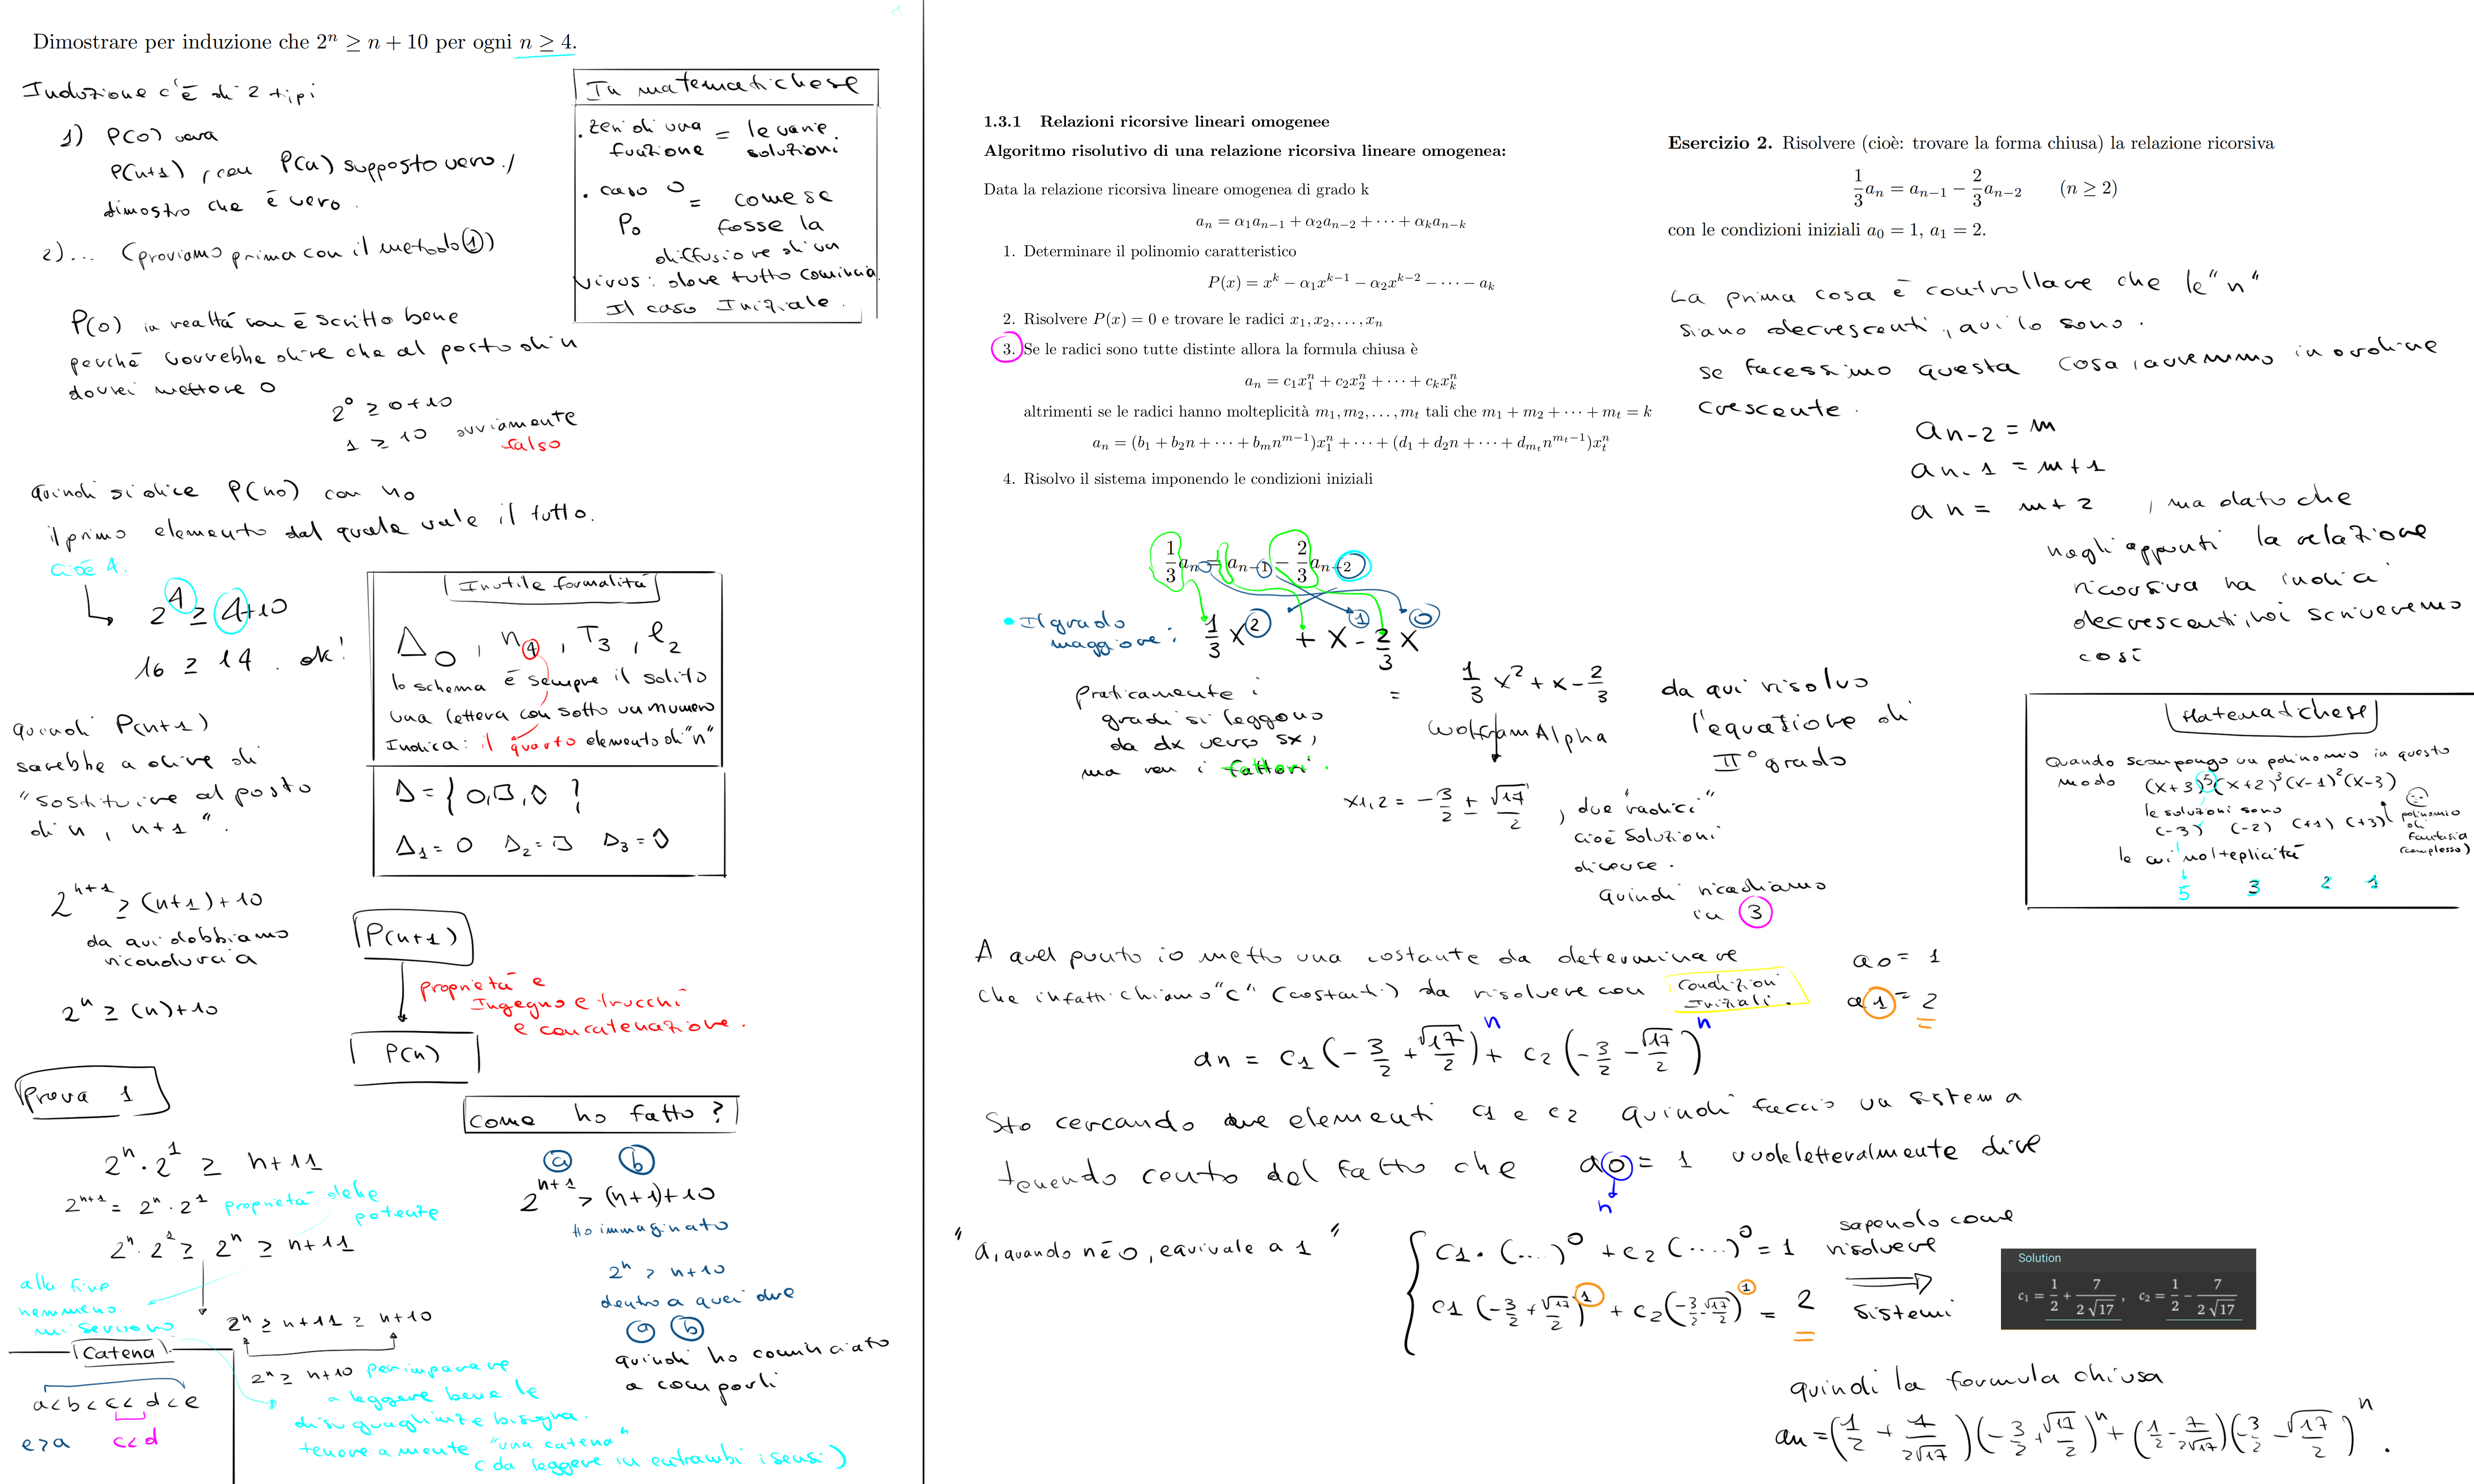 Dimostrare per induzione che 2^n ≥ n + 10 per ogni n ≥ 4.
Induzione c'è di 2 tipi
1) P(0) vera
P(n+1), con P(n) supposto vero /
dimostro che è vero.
2)... (proviamo prima con il metodo ①)
In matematichese
. zeri di una funzione = le varie soluzioni
. caso 0 P₀ = come se fosse la
diffusione di un
virus: dove tutto comincia.
Il caso Iniziale.
P(0) in realtà non è scritto bene
perché vorrebbe dire che al posto di n
dovrei mettere 0
2^0 ≥ 0+10
1 ≥ 10 ovviamente
falso
quindi si dice P(n0) con n0
il primo elemento dal quale vale il tutto.
cioè 4.
2^4 ≥ 4+10
16 ≥ 14 . ok!
Inutile formalità
Δ₀, n₄, T₃, l₂
lo schema è sempre il solito
una lettera con sotto un numero
Indica: il quarto elemento di "n"
Δ = { 0, □, ◊ }
Δ₁ = 0 Δ₂ = □ Δ₃ = ◊
quindi P(n+1)
sarebbe a dire di
"sostituire al posto
di n, n+1".
2^{n+1} ≥ (n+1)+10
da qui dobbiamo
ricondurci a
2^n ≥ (n)+10
P(n+1)
proprietà e
Ingegno e trucchi
e concatenazione.
P(n)
Prova 1
2^n · 2^1 ≥ n+11
2^{n+1} = 2^n · 2^1 proprietà delle
potenze
2^n · 2^1 ≥ 2^n ≥ n+11
alla fine
nemmeno
mi servono
2^n ≥ n+11 ≥ n+10
2^n ≥ n+10 per imparare
a leggere bene le
disuguaglianze bisogna
tenere a mente "una catena"
(da leggere in entrambi i sensi)
Catena
a<b<c<d<e
e>a c<d
come ho fatto?
ⓐ ⓑ
2^{n+1} > (n+1)+10
Ho immaginato
2^n > n+10
dentro a quei due
ⓐ ⓑ
quindi ho cominciato
a comporli
1.3.1 Relazioni ricorsive lineari omogenee
Algoritmo risolutivo di una relazione ricorsiva lineare omogenea:
Data la relazione ricorsiva lineare omogenea di grado k
a_n = α₁a_{n−1} + α₂a_{n−2} + · · · + α_k a_{n−k}
1. Determinare il polinomio caratteristico
P(x) = x^k − α₁x^{k−1} − α₂x^{k−2} − · · · − a_k
2. Risolvere P(x) = 0 e trovare le radici x₁, x₂, . . . , x_n
3. Se le radici sono tutte distinte allora la formula chiusa è
a_n = c₁x₁^n + c₂x₂^n + · · · + c_k x_k^n
altrimenti se le radici hanno molteplicità m₁, m₂, . . . , m_t tali che m₁ + m₂ + · · · + m_t = k
a_n = (b₁ + b₂n + · · · + b_m n^{m−1})x₁^n + · · · + (d₁ + d₂n + · · · + d_{m_t} n^{m_t−1})x_t^n
4. Risolvo il sistema imponendo le condizioni iniziali
1/3 a_n = a_{n−1} − 2/3 a_{n−2}
• Il grado
maggiore: 1/3 x^② + x^① − 2/3 x^⓪
praticamente i
gradi si leggono
da dx verso sx,
ma non i fattori.
= 1/3 x² + x − 2/3
da qui risolvo
l'equazione di
II° grado
WolframAlpha
x1,2 = −3/2 ± √17/2 , due "radici"
cioè soluzioni
diverse.
quindi ricadiamo
in ③
Esercizio 2. Risolvere (cioè: trovare la forma chiusa) la relazione ricorsiva
1/3 a_n = a_{n−1} − 2/3 a_{n−2} (n ≥ 2)
con le condizioni iniziali a₀ = 1, a₁ = 2.
La prima cosa è controllare che le "n"
siano decrescenti, qui lo sono.
se facessimo questa cosa, avremmo in ordine
crescente.
a_{n-2} = m
a_{n-1} = m+1
a_n = m+2 , ma dato che
negli appunti la relazione
ricorsiva ha indici
decrescenti, noi scriveremo
così
Matematichese
Quando scompongo un polinomio in questo
modo (x+3)^5 (x+2)^3 (x-1)^2 (x-3)
le soluzioni sono
(-3) (-2) (+1) (+3)
polinomio
di
fantasia
(complesso)
le cui molteplicità
5 3 2 1
A quel punto io metto una costante da determinare
che infatti chiamo "c" (costanti) da risolvere con condizioni Iniziali.
a0 = 1
a1 = 2
an = c1 (−3/2 + √17/2)^n + c2 (−3/2 − √17/2)^n
Sto cercando due elementi c1 e c2 quindi faccio un sistema
tenendo conto del fatto che a0 = 1 vuole letteralmente dire
n
"a, quando n è 0, equivale a 1"
c1 · (....)^0 + c2 (....)^0 = 1
c1 (−3/2 + √17/2)^1 + c2 (−3/2 − √17/2)^1 = 2
sapendo come
risolvere
sistemi
Solution
c₁ = 1/2 + 7/(2√17) , c₂ = 1/2 − 7/(2√17)
quindi la formula chiusa
an = (1/2 + 7/(2√17)) (−3/2 + √17/2)^n + (1/2 − 7/(2√17)) (−3/2 − √17/2)^n .